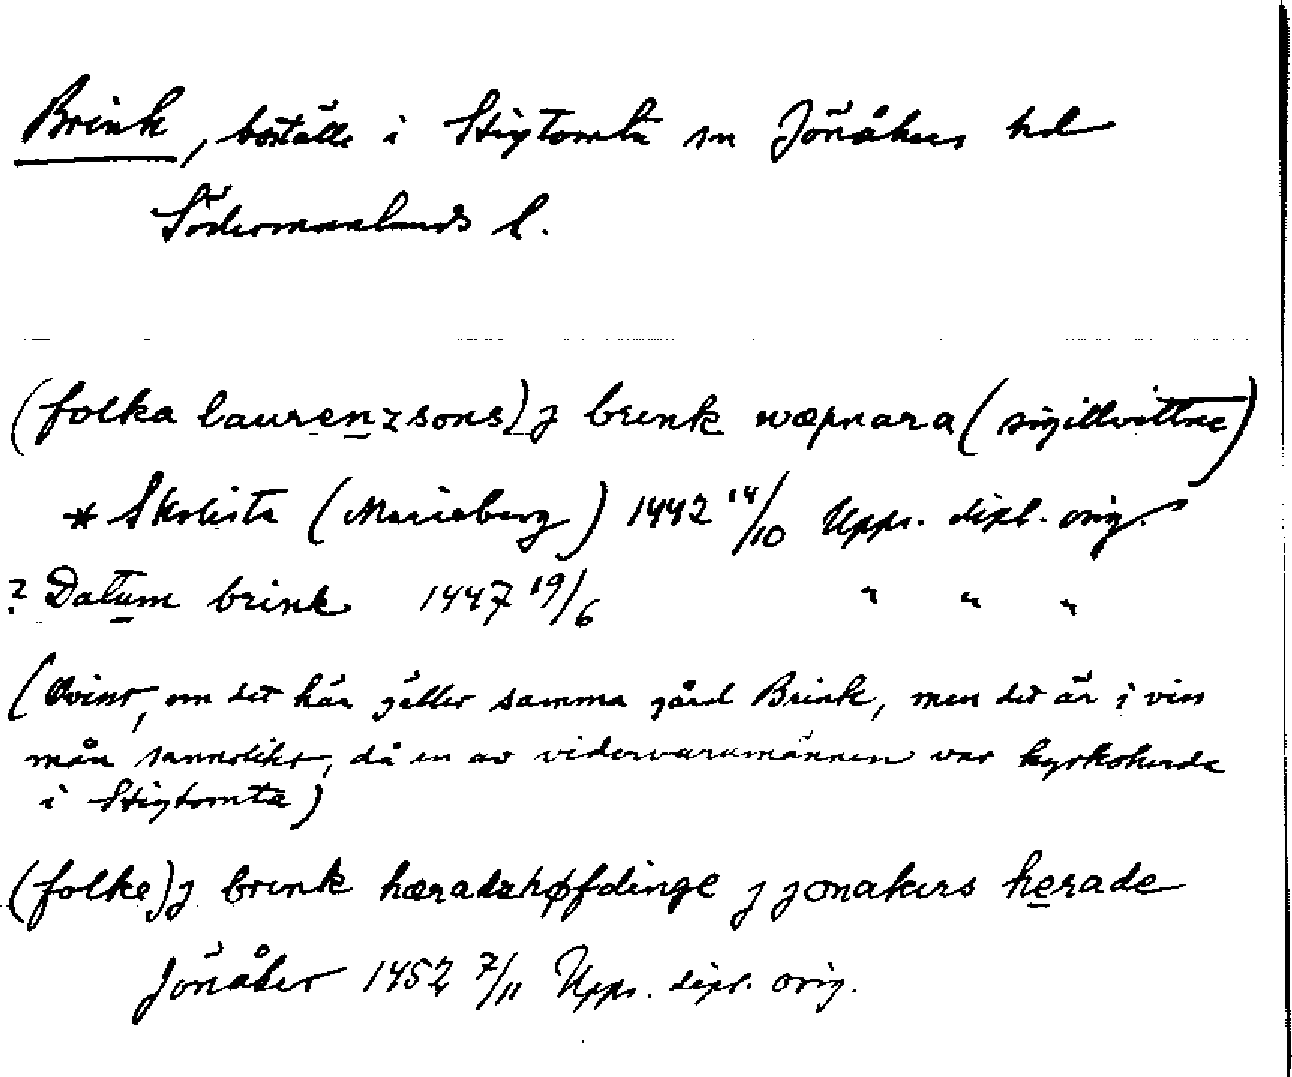 Brink, boställe i Stigtomta sn Jönåkers hd
Södermanlands l.
(folka laurenzsons) j brink wæpnara (sigillvittne)
* Skolista (Marieberg) 1442 14/10 Upps. dipl. orig.
? Datum brink 1447 19/6 " " "
(Ovisst, om det här gäller samma gård Brink, men det är i viss
mån sannolikt, då en av vidervarumännen var kyrkoherde
i Stigtomta)
(folke) j brink hæradzhøfdinge j jonakers herade
Jönåker 1452 7/11 Upps. dipl. orig.